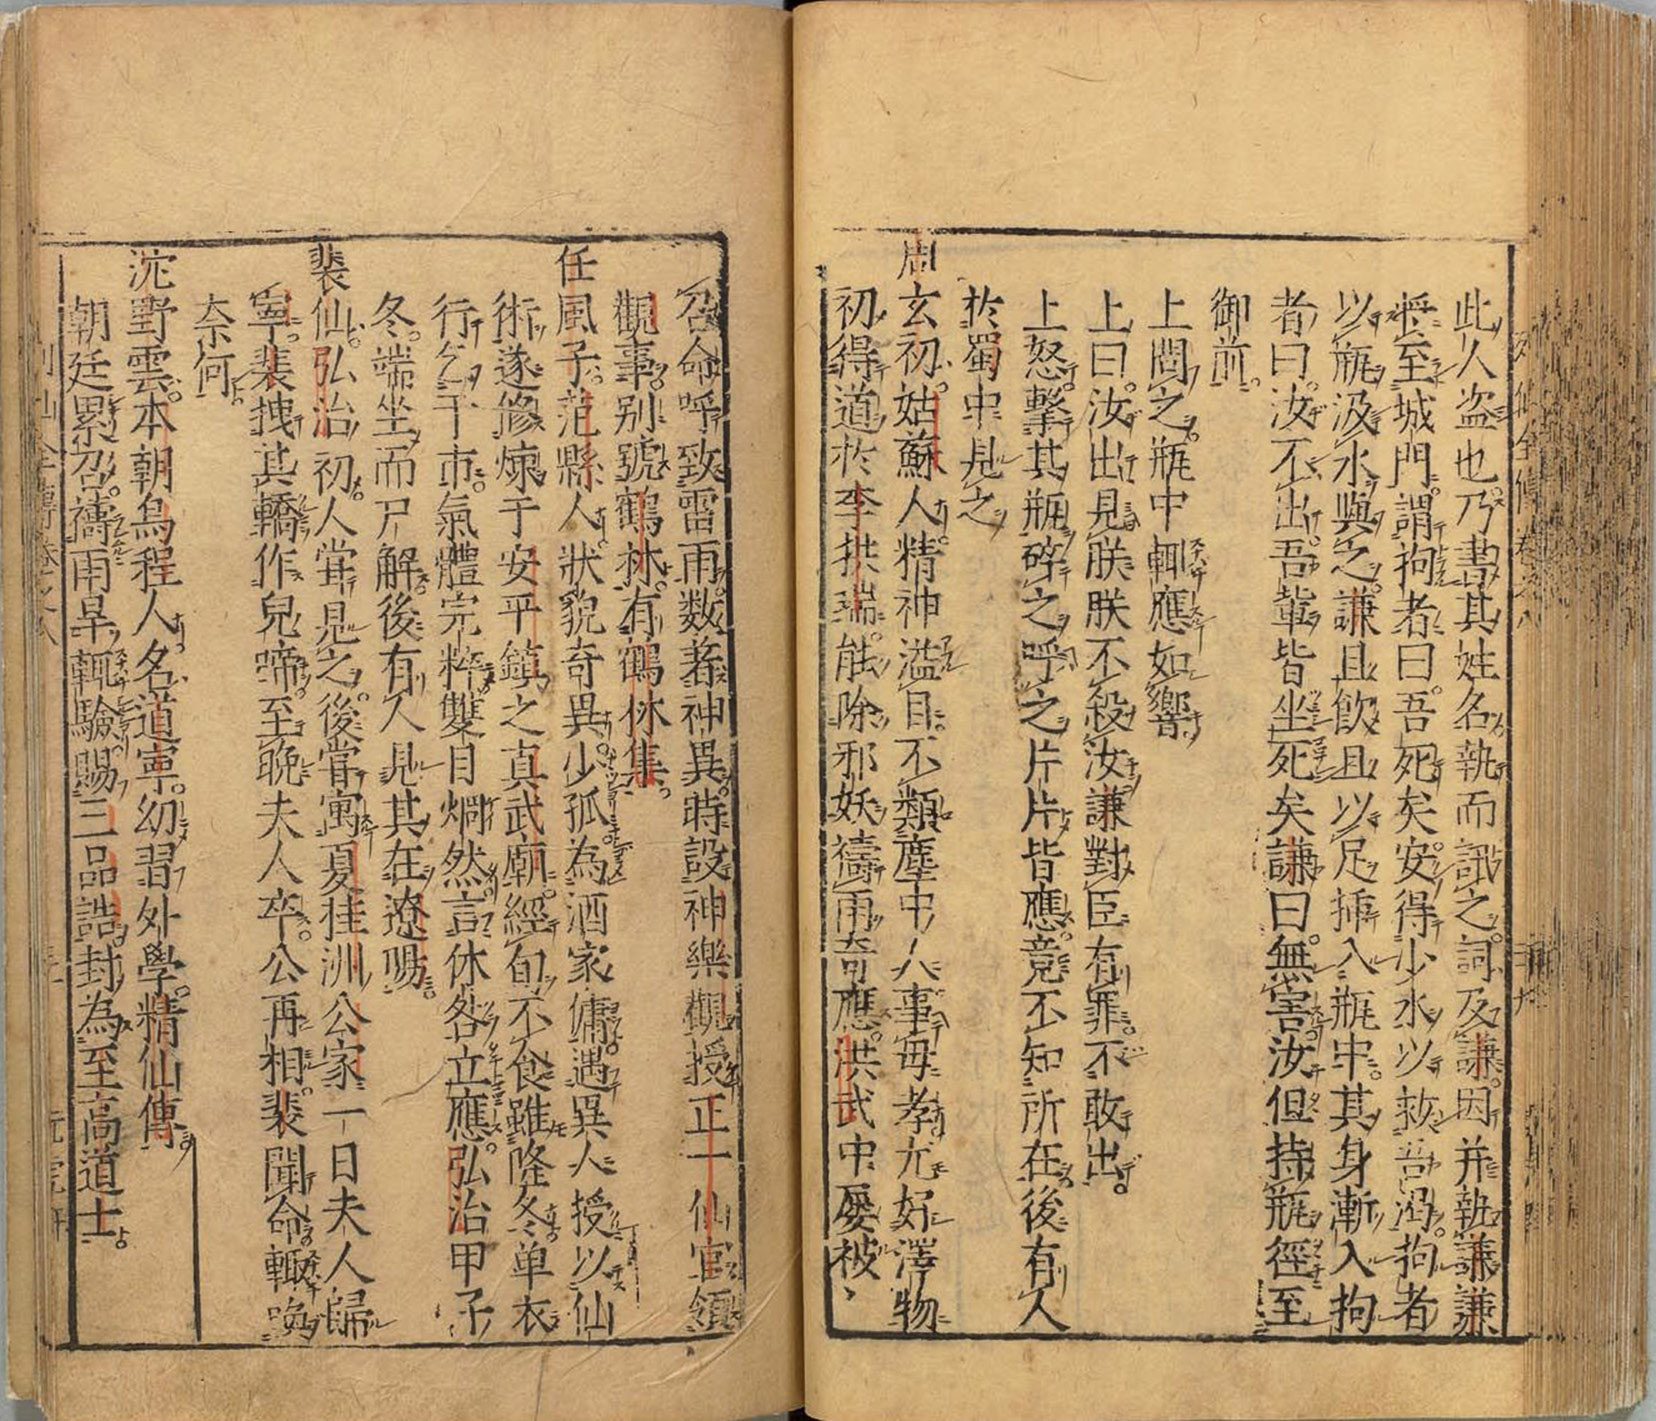 此人盗也乃書其姓名執而訊之詞及謙因并執謙謙
将至城門謂拘者曰吾死矣安得少水以救吾渴拘者
以瓶汲水與之謙且飲且以足挿入瓶中其身漸入拘
者曰汝不出吾軰皆坐死矣謙曰無害汝但持瓶徑至
御前
上問之瓶中輙應如響
上曰汝出見朕朕不殺汝謙對臣有罪不敢出
上怒擊其瓶碎之呼之片片皆應竟不知所在後有人
於蜀中見之
周玄初姑蘇人精神溢目不類塵中人事毋孝尤好澤物
初得道於李拱瑞能除邪妖禱雨奇應洪武中屡被
召命呼致雷雨数著神異時設神樂觀授正一仙官領
觀事别號鶴林有鶴林集
任風子范縣人狀貌奇異少孤為酒家傭遇異人授以仙
術遂修煉于安平鎮之真武廟經旬不食雖隆冬单衣
行乞于市氣體完粹雙目炯然言休咎立應弘治甲子
冬端坐而尸解後有人見其在遼陽
裴仙弘治初人甞見之後甞寓夏桂洲公家一日夫人歸
寧裴拽其轎作兒啼至晚夫人卒公再相裴聞命輙喚
奈何
沈野雲本朝烏程人名道寧幼習外學精仙傳
朝廷累召禱雨旱輙驗賜三品誥封為至高道士